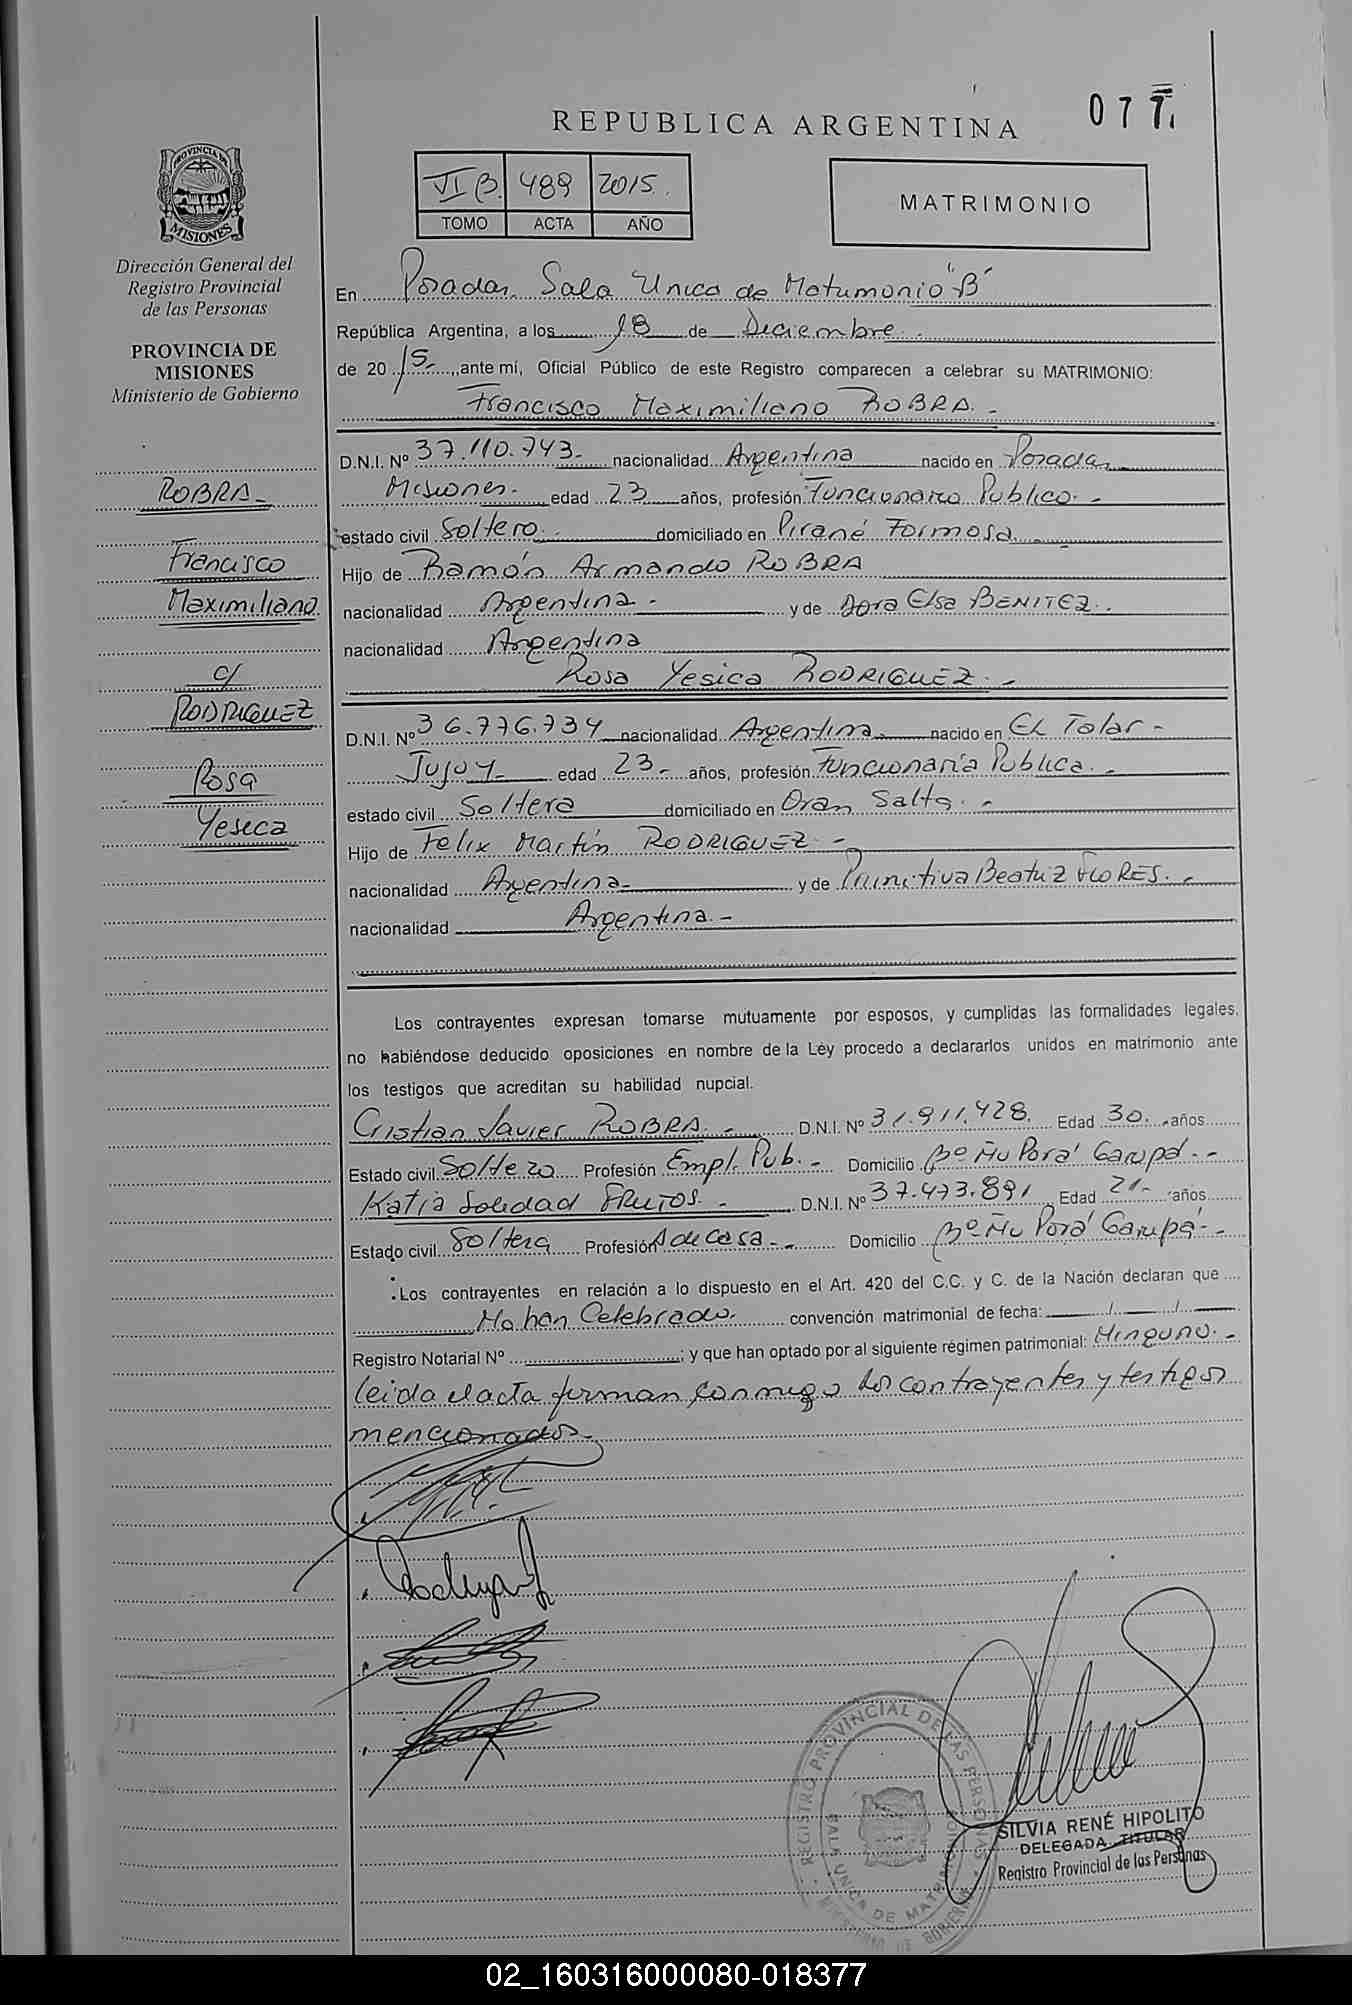 077
REPUBLICA ARGENTINA
VI B. 489 2015.
TOMO ACTA AÑO
MATRIMONIO
PROVINCIA DE
MISIONES
Dirección General del
Registro Provincial
de las Personas
PROVINCIA DE
MISIONES
Ministerio de Gobierno
ROBRA
Francisco
Maximiliano
c/
RODRIGUEZ
Rosa
Yesica
En Posadas, Sala Unica de Matrimonio "B"
República Argentina, a los 18 de Diciembre.
de 2015 , ante mí, Oficial Público de este Registro comparecen a celebrar su MATRIMONIO:
Francisco Maximiliano ROBRA.-
D.N.I. Nº 37.110.743.- nacionalidad Argentina nacido en Posadas
Misiones.- edad 23 años, profesión Funcionario Publico.-
estado civil Soltero.- domiciliado en Pirané Formosa.-
Hijo de Ramón Armando ROBRA
nacionalidad Argentina.- y de Dora Elsa BENITEZ.
nacionalidad Argentina
Rosa Yesica RODRIGUEZ.-
D.N.I. Nº 36.776.734 nacionalidad Argentina nacido en El Talar-
Jujuy- edad 23.- años, profesión Funcionaria Publica.-
estado civil Soltera domiciliado en Oran Salta.-
Hijo de Felix Martín RODRIGUEZ.-
nacionalidad Argentina- y de Primitiva Beatriz FLORES.-
nacionalidad Argentina.-
Los contrayentes expresan tomarse mutuamente por esposos, y cumplidas las formalidades legales,
no habiéndose deducido oposiciones en nombre de la Ley procedo a declararlos unidos en matrimonio ante
los testigos que acreditan su habilidad nupcial.
Cristian Javier ROBRA.- D.N.I. Nº 31.911.428. Edad 30.- años
Estado civil Soltero Profesión Empl. Pub.- Domicilio Bº Ñu Porá Garupá.-
Katia Soledad FRUTOS.- D.N.I. Nº 37.473.891 Edad 21- años
Estado civil Soltera Profesión A de casa.- Domicilio Bº Ñu Porá Garupá.-
Los contrayentes en relación a lo dispuesto en el Art. 420 del C.C. y C. de la Nación declaran que
No han Celebrado. convención matrimonial de fecha: / /
Registro Notarial Nº ; y que han optado por al siguiente régimen patrimonial: Ninguno.-
leida el acta firman conmigo los contrayentes y testigos
mencionados.-
REGISTRO PROVINCIAL DE LAS PERSONAS
SALA UNICA DE MATRIMONIO
SILVIA RENÉ HIPOLITO
DELEGADA TITULAR
Registro Provincial de las Personas
02_160316000080-018377